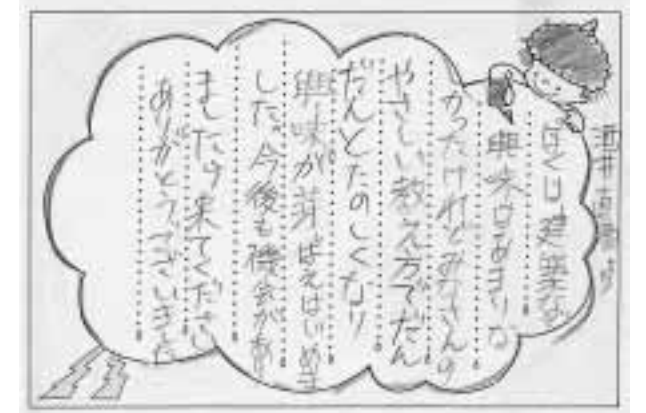 ぼくは建築な
興味はあまりな
かったけれどみなさんの
やさしい教え方でだん
だんとたのしくなり
興味が芽ばえはじめま
した。今後も機会があり
ましたら来てください
ありがとうございました